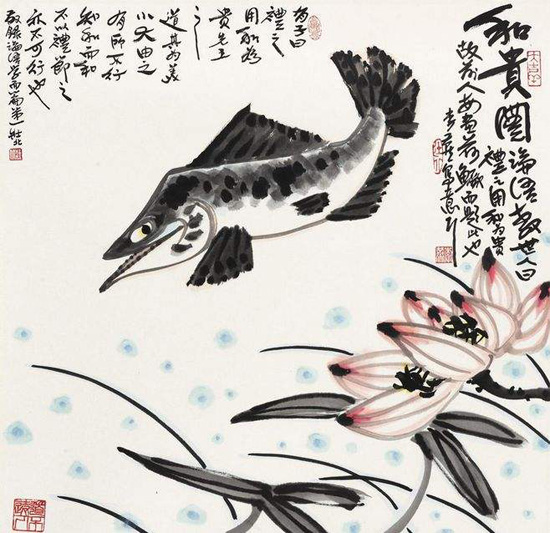 和貴圖
論語教世人曰
禮之用和為貴
故前人每畫荷鱖而題此也
有子曰
禮之
用和為
貴先王
之
道斯為美
小大由之
有所不行
知和而和
不以禮節之
亦不可行也
敬錄論語學而篇第一